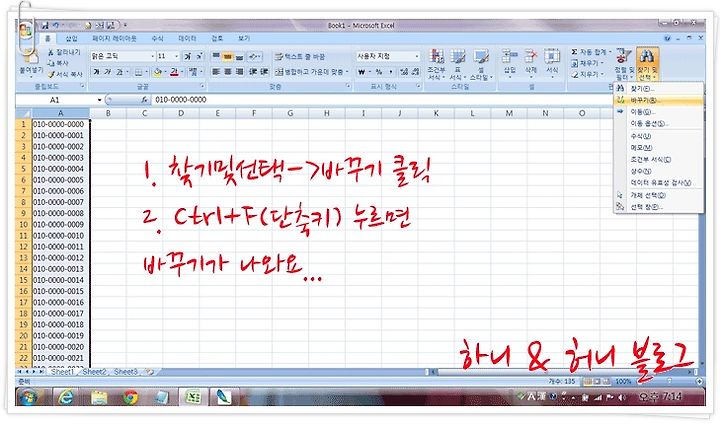 Book1 - Microsoft Excel
홈 삽입 페이지 레이아웃 수식 데이터 검토 보기
붙여넣기 잘라내기 복사 서식 복사
맑은 고딕 11
텍스트 줄 바꿈
병합하고 가운데 맞춤
사용자 지정
조건부 서식 표 서식 셀 스타일
삽입 삭제 서식
자동 합계 채우기 지우기
정렬 및 찾기 및 선택
클립보드 글꼴 맞춤 표시 형식 스타일 셀
A1 010-0000-0000
찾기(F)...
바꾸기(R)...
이동(G)...
이동 옵션(S)...
수식(U)
메모(M)
조건부 서식(C)
상수(N)
데이터 유효성 검사(V)
개체 선택(O)
선택 창(P)...
A B C D E F G H I J K L M N O
1 010-0000-0000
2 010-0000-0001
3 010-0000-0002
4 010-0000-0003
5 010-0000-0004
6 010-0000-0005
7 010-0000-0006
8 010-0000-0007
9 010-0000-0008
10 010-0000-0009
11 010-0000-0010
12 010-0000-0011
13 010-0000-0012
14 010-0000-0013
15 010-0000-0014
16 010-0000-0015
17 010-0000-0016
18 010-0000-0017
19 010-0000-0018
20 010-0000-0019
21 010-0000-0020
22 010-0000-0021
1. 찾기및선택->바꾸기 클릭
2. Ctrl+F(단축키) 누르면
바꾸기가 나와요...
하니 & 허니 블로그
Sheet1 Sheet2 Sheet3
준비 개수: 135 100%
오후 7:14